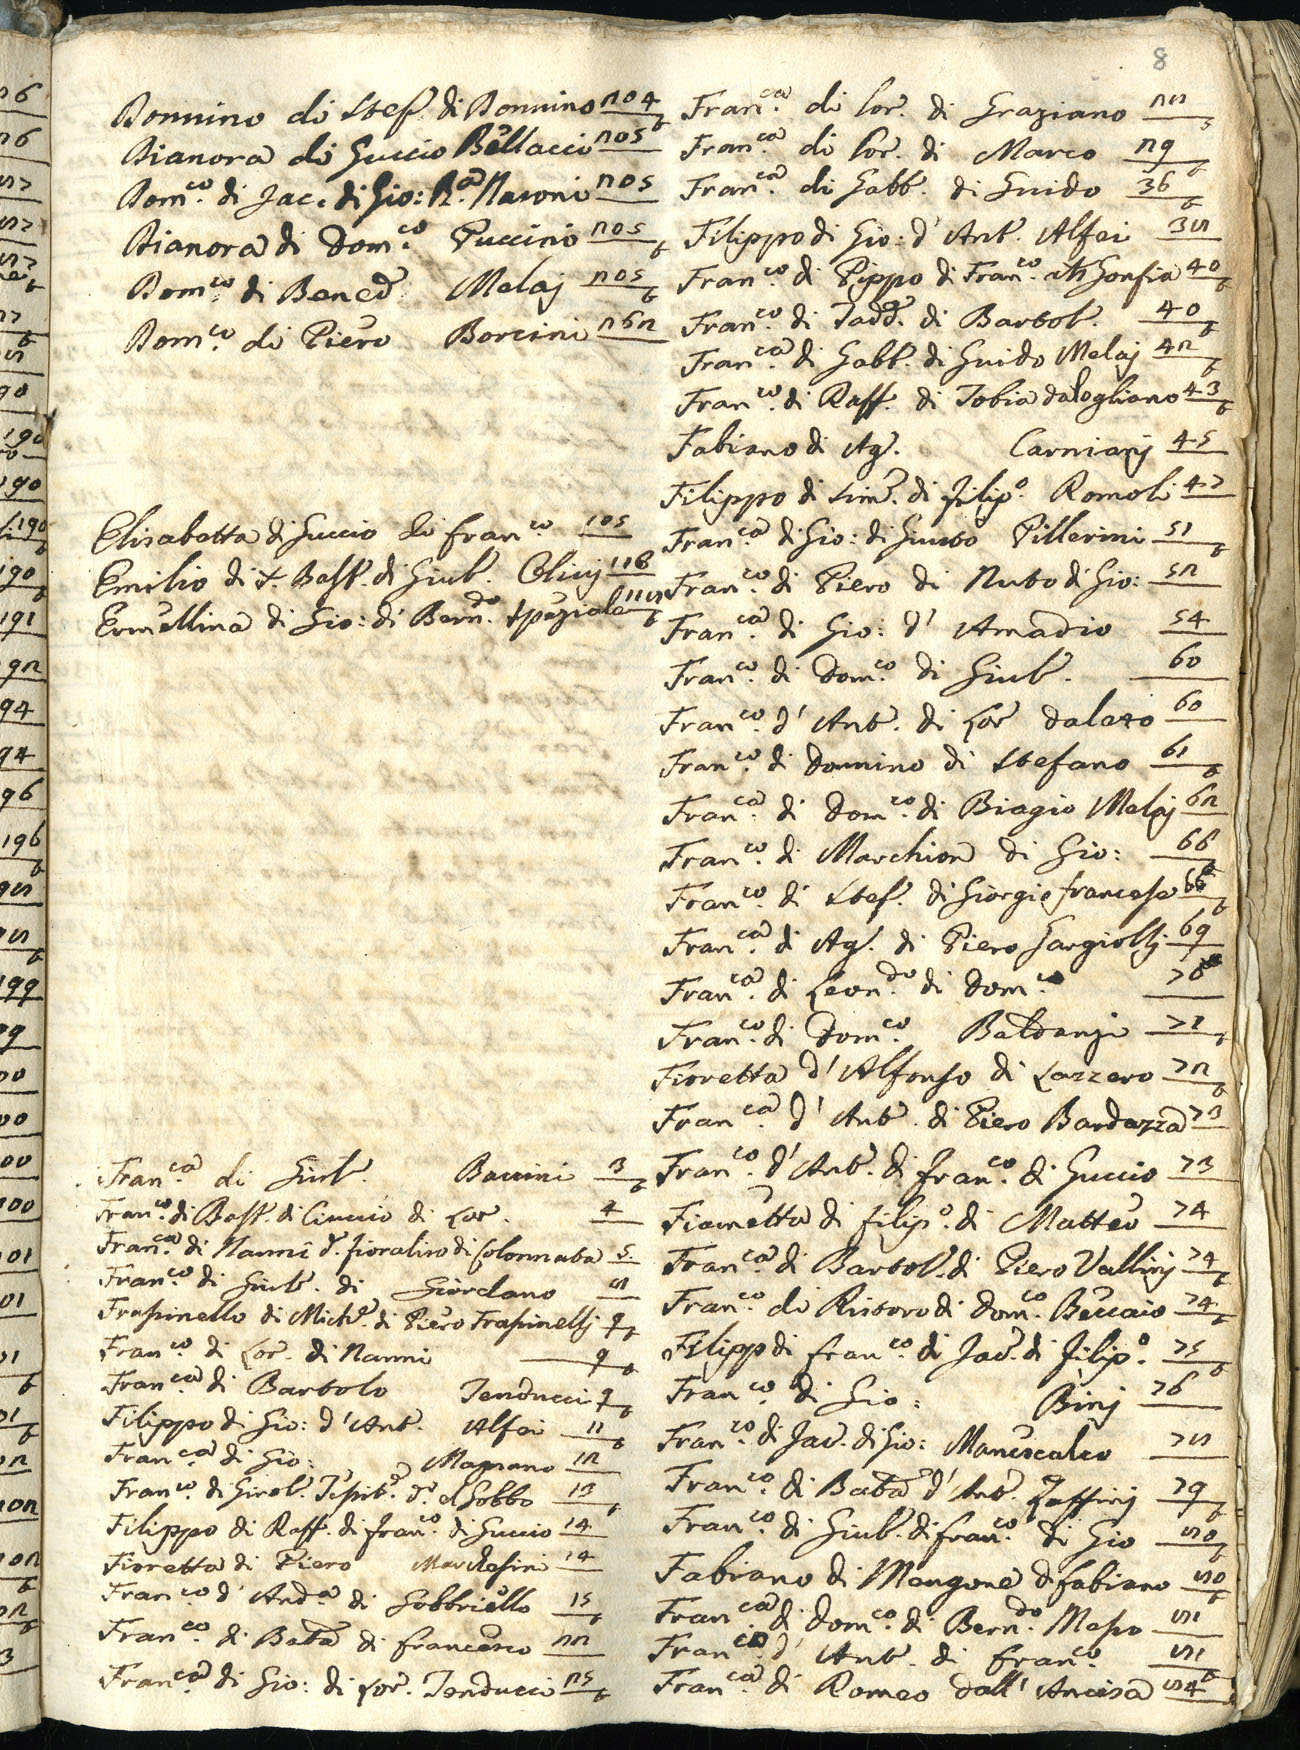 8
Donnino di Stef. di Donnino 204 b
Dianora di Guccio Bellacci 205
Dom.co di Jac. di Gio: Masoni 205
Dianora di Dom.co Puccini 205 b
Dom.co di Bened. Melaj 205 b
Dom.co di Piero Borcini 262
Elisabetta di Guccio di fran.co 105
Emilio di S. Batt. di Giul. Olivj 118
Ermellina di Gio: di Bern.do Speziale b
Fran.ca di Giul. Baccini 3 b
Fran.co di Batt. di Ciuccio di Lor. 4
Fran.ca di Nanni d. fioraliso di Colonnata 5
Fran.co di Giul. di Giordano 8
Frassinello di Mich. di Piero Frassinellj 9 b
Fran.co di Lor. di Nanni 9 b
Fran.ca di Bartolo Tenducci 9 b
Filippo di Gio: d' Ant. Alfei 11 b
Fran.ca di Gio: Magnano 12
Fran.co di Girol. d. el Gobbo 13 b
Filippo di Raff. di fran.co di Guccio 14
Fioretta di Piero Marchesini 14
Fran.co d' And.a di Gobbriello 15 b
Fran.co di Batta di francesco 22
Fran.ca di Gio: di Lor. Tenducci 25 b
Fran.ca di Lor. di Graziano 28 b
Fran.ca di Lor. di Marco 29 b
Fran.ca di Gabb. di Guido 36 b
Filippo di Gio: d' Ant. Alfei 38
Fran.co di Pippo di Fran.co Gonfia 40 b
Fran.co di Tadd. di Bartol. 40 b
Fran.ca di Gabb. di Guido Melaj 42 b
Fran.co di Raff. di Tobia da Cogliano 43 b
Fabiano di Ag. Carnianj 45
Filippo di Sim. di Filip.o Romoli 47
Fran.ca di Gio: di Guido Pillerini 51 b
Fran.co di Piero di Nuto di Gio: 52
Fran.ca di Gio: d' Amadio 54
Fran.co di Dom.co di Giul. 60
Fran.co d' Ant. di Lor dalazo 60
Fran.co di Donnino di Stefano 61 b
Fran.ca di Dom.co di Biagio Melaj 62
Fran.co di Marchion di Gio: 66 b
Fran.co di Stef. di Giorgio francese 66 b
Fran.ca di Ag. di Piero Gargiollj 69
Fran.ca di Leon.do di Dom.co 70
Fran.co di Dom.co Baldanzi 71 b
Fioretta d' Alfonso di Lazzero 72 b
Fran.ca d' Ant. di Piero Bardazza 73
Fran.co d' Ant. di fran.co di Guccio 73
Fiametta di filip.o di Matteo 74
Fran.ca di Bartol. di Piero Vallinj 74 b
Fran.co di Ristoro di Dom.co Beccaio 74 b
Filippo di fran.co di Jac. di Filip.o 75 b
Fran.co di Gio: Binj 76
Fran.co di Jac. di Gio: Maniscalco 78
Fran.co di Batta d' Ant. Zaffinj 79 b
Fran.co di Giul. di fran.co di Gio 80 b
Fabiano di Mengone di fabiano 80 b
Fran.ca di Dom.co di Bern.do Maso 81
Fran.co d' Ant. di fran.co 81 b
Fran.ca di Romeo dall' Ancisa 84